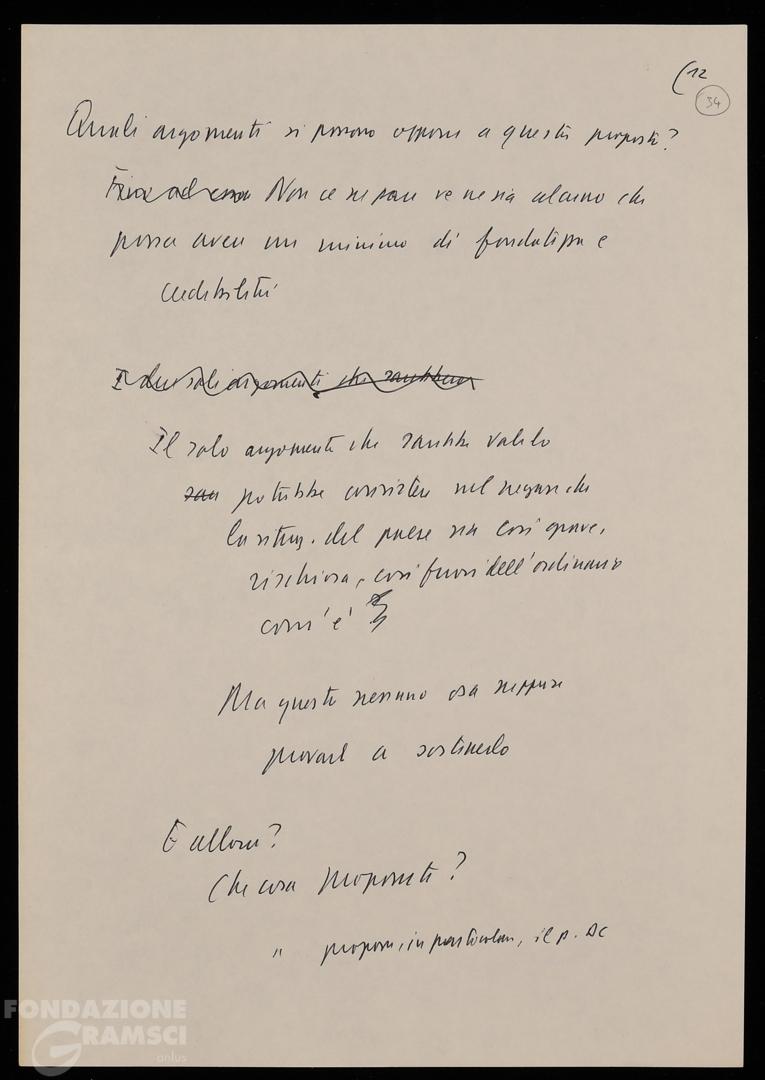 (12
34
Quali argomenti si possono opporre a questa proposta?
Fino ad ora Non ce ne pare ve ne sia alcuno che
possa avere un minimo di fondatezza e
credibilità
I due soli argomenti che sarebbero
Il solo argomento che sarebbe valido
sare potrebbe consistere nel negare che
la situaz. del paese sia così grave,
rischiosa, così fuori dell'ordinario
com'è
Ma questo nessuno osa neppure
provare a sostenerlo
E allora?
Che cosa proponete?
" propone, in particolare, il p. DC
FONDAZIONE
GRAMSCI
onlus